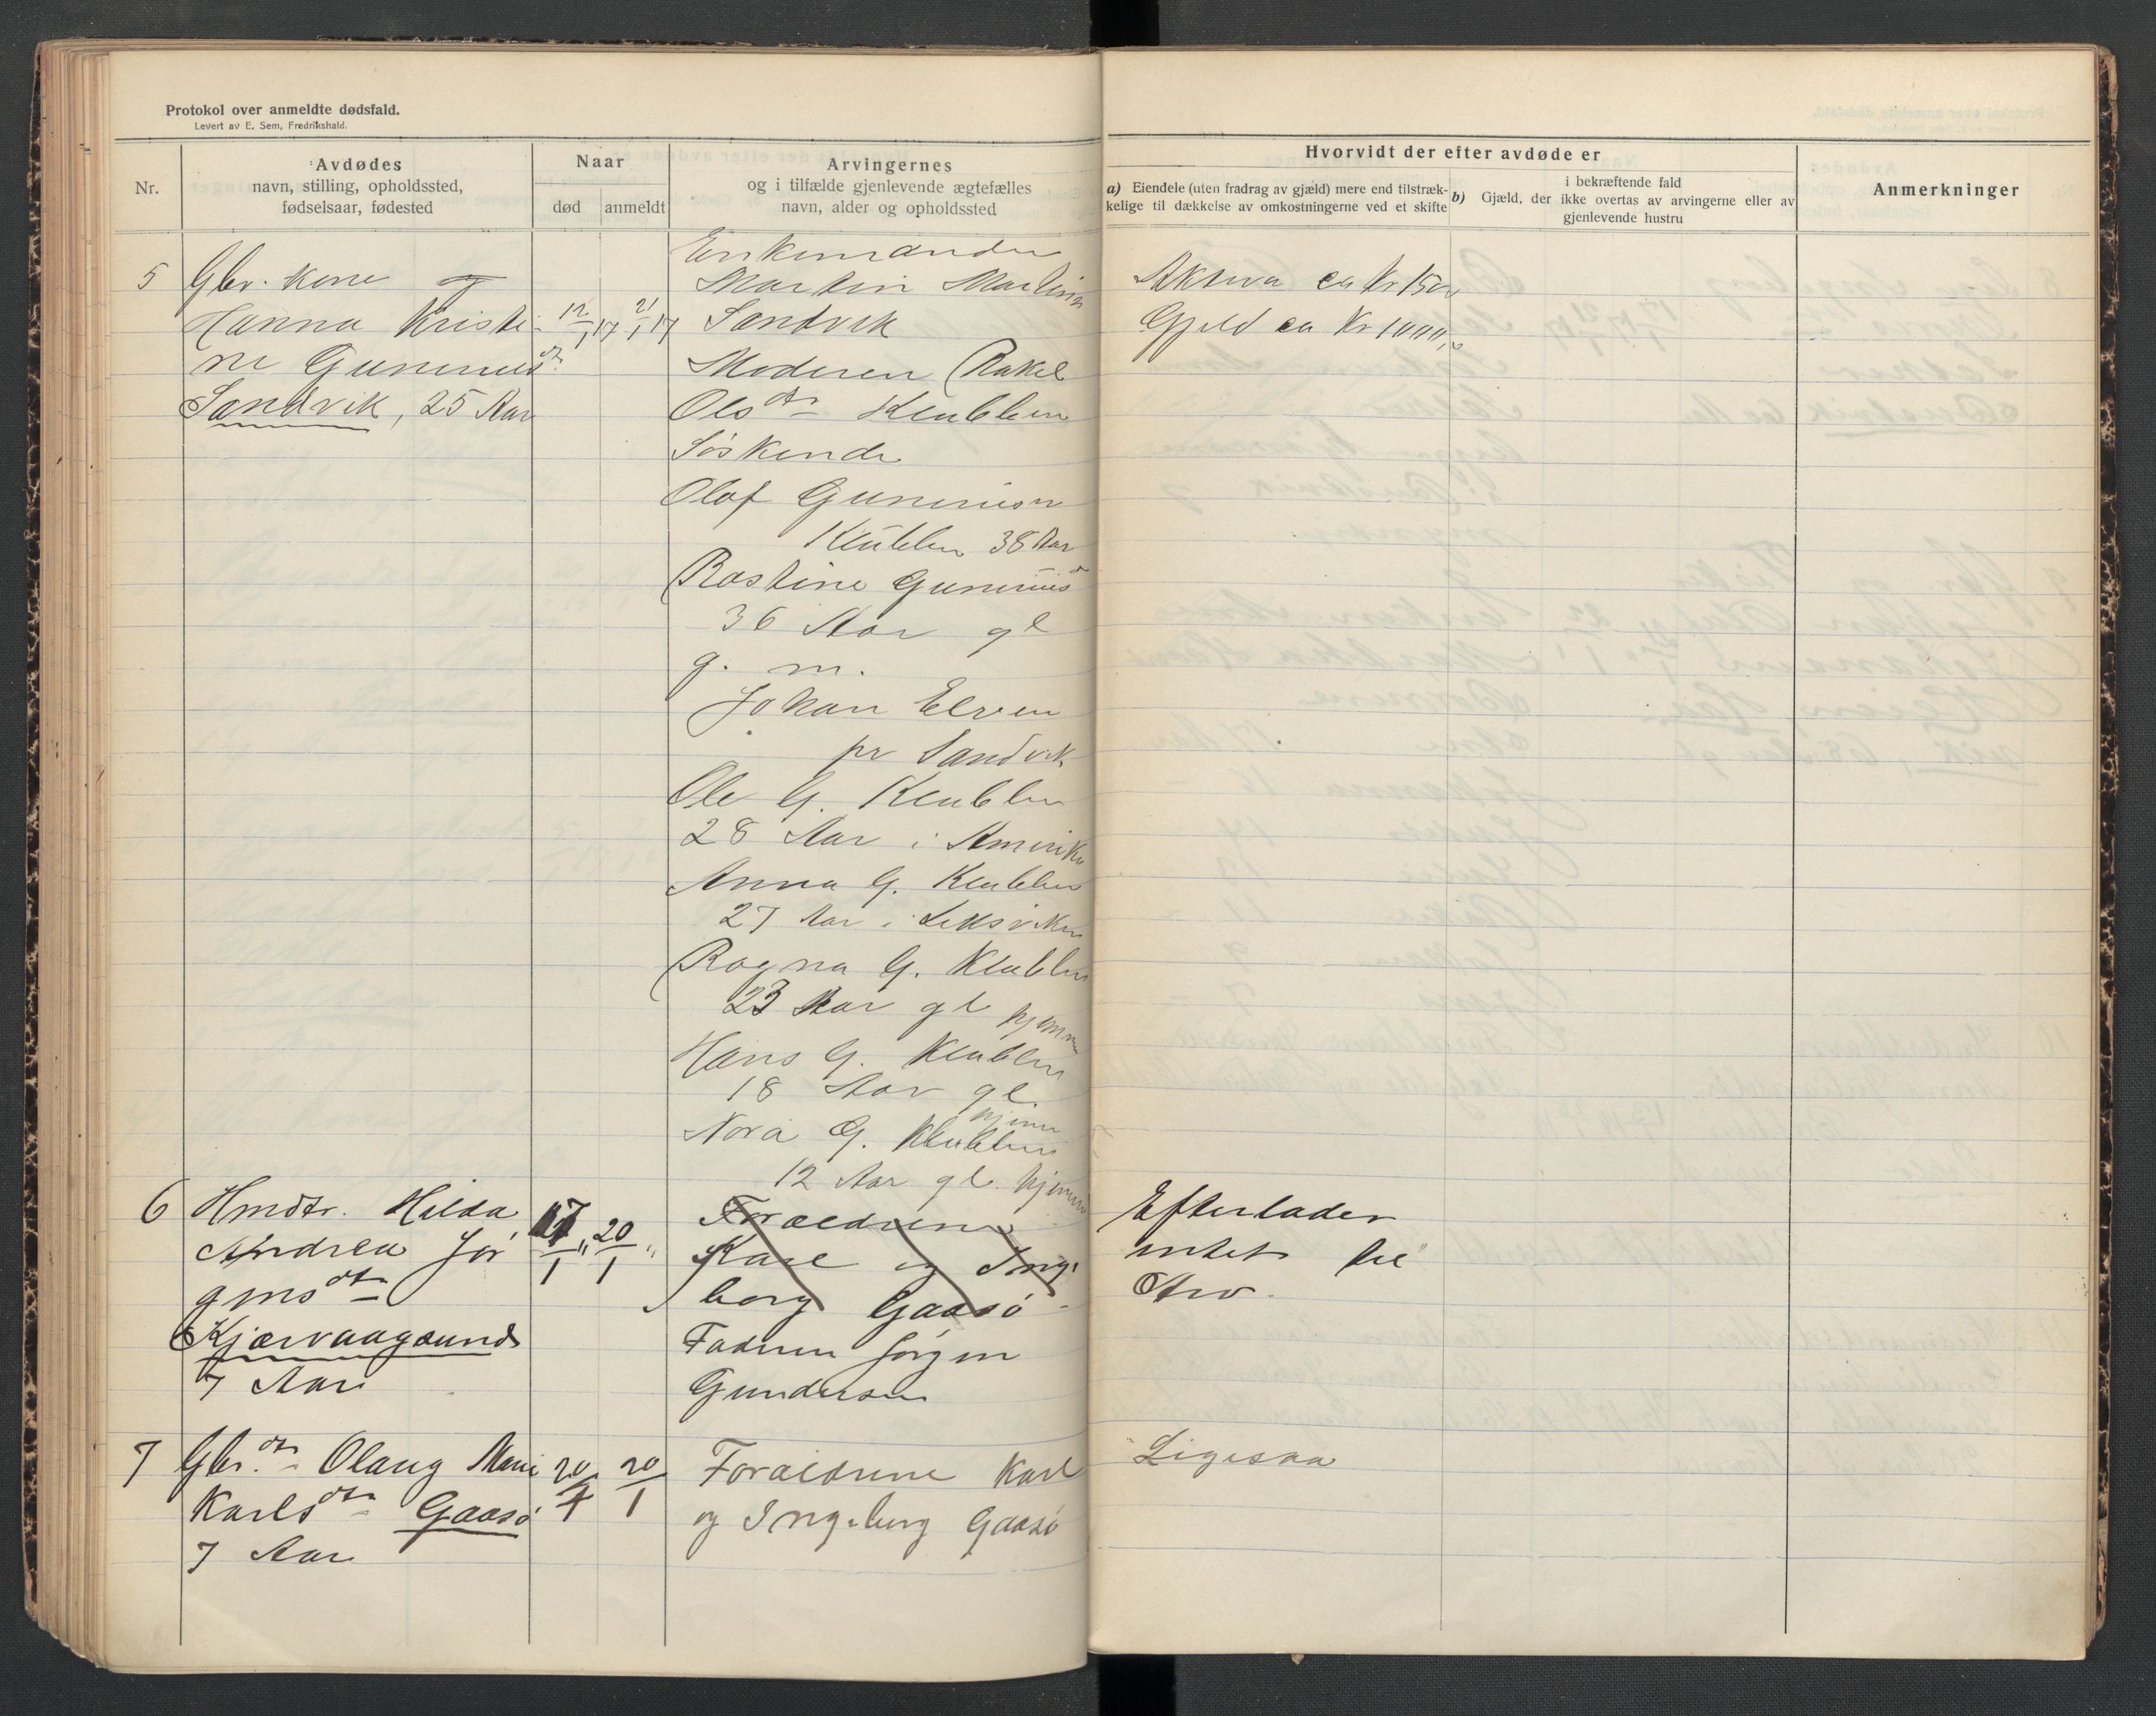 Protokol over anmeldte dødsfald.
Levert av E. Sem, Fredrikshald.
Nr.
Avdødes
navn, stilling, opholdssted,
fødselsaar, fødested
Naar
død
anmeldt
Arvingernes
og i tilfælde gjenlevende ægtefælles
navn, alder og opholdssted
Hvorvidt der efter avdøde er
a) Eiendele (uten fradrag av gjæld) mere end tilstræk-
kelige til dækkelse av omkostningerne ved et skifte
i bekræftende fald
b) Gjæld, der ikke overtas av arvingerne eller av
gjenlevende hustru
Anmerkninger
5 Gbr. kone
Hanna Kristi-
ne Gunnriusdtr.
Sandvik, 25 Aar
12/1 17
21/1 17
Enkemanden
Martin Martinsen
Sandvik
Moderen Rakel
Olsdtr Klubben
Søskende
Olaf Gunniusen
Klubben 38 Aar
Rastine Gunniusd
36 Aar gl
g. m.
Johan Elven
pr Sandvik
Ole G. Klubben
28 Aar i Amerika
Anna G. Klubben
27 Aar i Leksviken
Ragna G. Klubben
23 Aar gl hjemme
Hans G. Klubben
18 Aar gl.
hjemme
Nora G. Klubben
12 Aar gl. hjemme
Aktiva ca kr 1500
Gjeld ca Kr 1000,-
6 Hmdtr. Hilda
Andrea Jør
gensdtr
Kjærvaagsund
7 Aar
17/1 "
20/1 "
Forældrene
Karl og Inge
borg Gaasø
Faderen Jørgen
Gundersen
Efterlader
intet til
Arv.
7 Gbr.dtr Olaug Marie
Karlsdtr Gaasø
7 Aar
20/1
Forældrene Karl
og Ingeborg Gaasø
Ligesaa